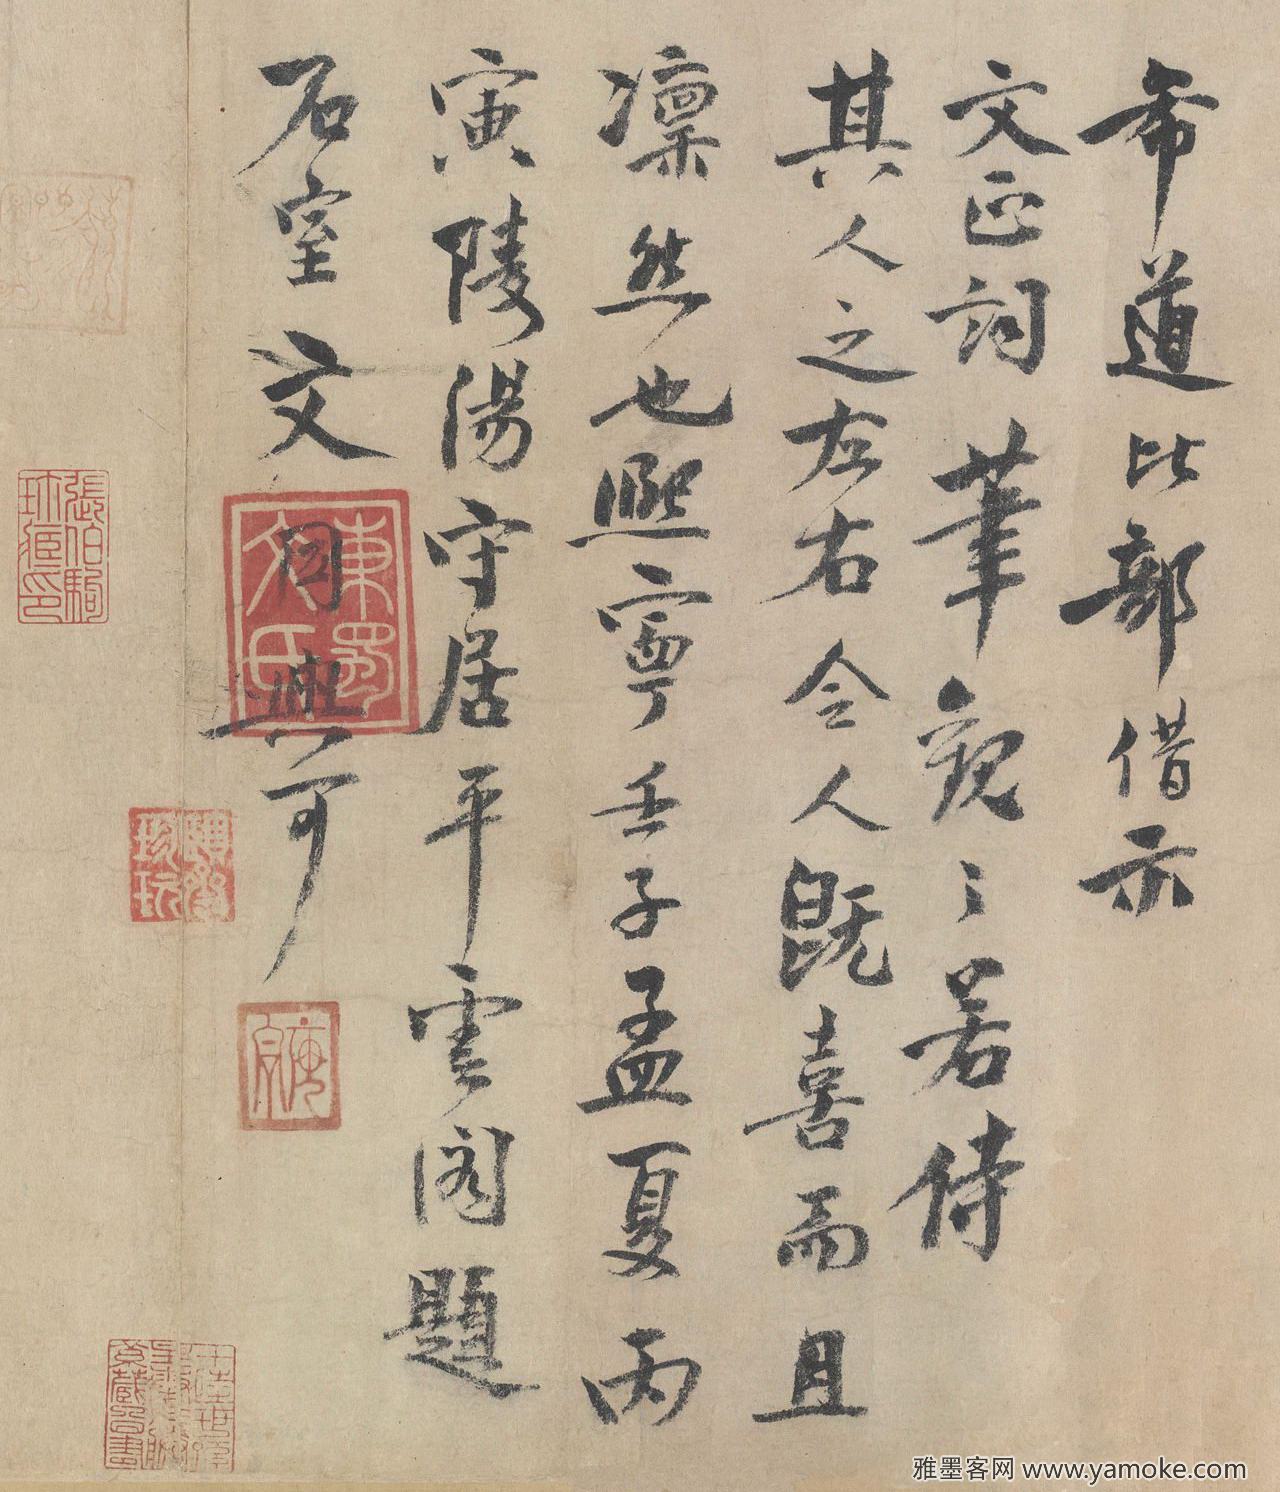 希道比部借示
文正詞筆觀〻若侍
其人之左右令人既喜而且
凜然也熙寧壬子孟夏丙
寅陵陽守居平雲閣題
石室文同與可
東蜀文氏
張伯駒珍藏印
雅墨客网 www.yamoke.com